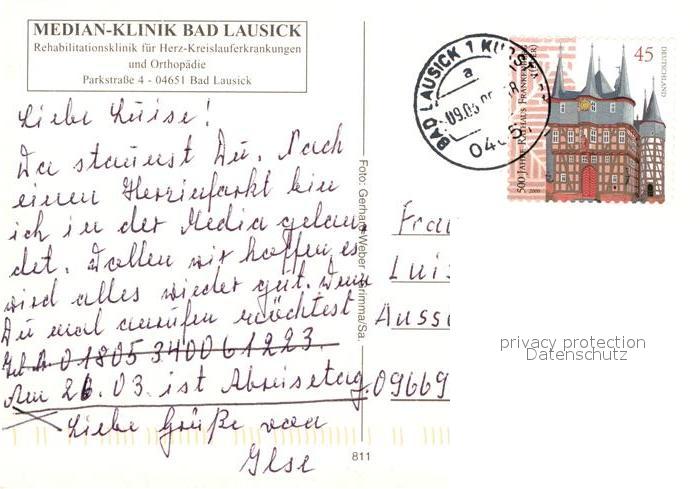 MEDIAN-KLINIK BAD LAUSICK
Rehabilitationsklinik für Herz-Kreislauferkrankungen
und Orthopädie
Parkstraße 4 - 04651 Bad Lausick
Liebe Luise!
Da staunst Du. Nach
einem Herzinfarkt bin
ich in der Media gelan-
det. Wollen wir hoffen, es
wird alles wieder gut. Wenn
Du mal anrufen möchtest
01805 340061223.
Am 26.03. ist Abreisetag.
Liebe Grüße von
Ilse
Foto: Gerhard Weber Grimma/Sa.
811
BAD LAUSICK 1
a
09.03
04
500 JAHRE RATHAUS FRANKENBERG (EDER)
2009
45
DEUTSCHLAND
Frau
Luis
Auss
09669
privacy protection
Datenschutz